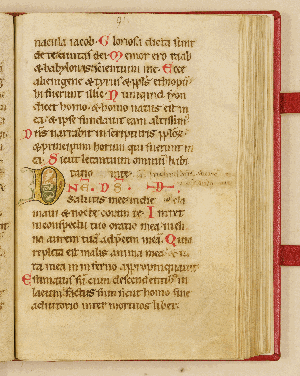 nacula iacob. Gloriosa dicta sunt
de te ciuitas dei. Memor ero raab
& babylonis scientium me. Ecce
alienigene & tyrus & ppls ethiopū
hi fuerunt illic. Nunquid syon
dicet homo & homo natus est in
ea & ipse fundauit eam altissim'
Dns narrabit in scripturis pplor
& principum horum qui fuerunt in
ea. Sicut letantium omnium habi
tatio
DNE DS
salutis mee in die clama
maui & nocte coram te. Intret
in conspectu tuo oratio mea incli
na aurem tuā ad pcem meā. Quia
repleta est malis anima mea & ui
ta mea in inferno appropinquauit
Estimatus sū cum descendentib; in
lacum factus sum sicut homo sine
adiutorio inter mortuos liber.